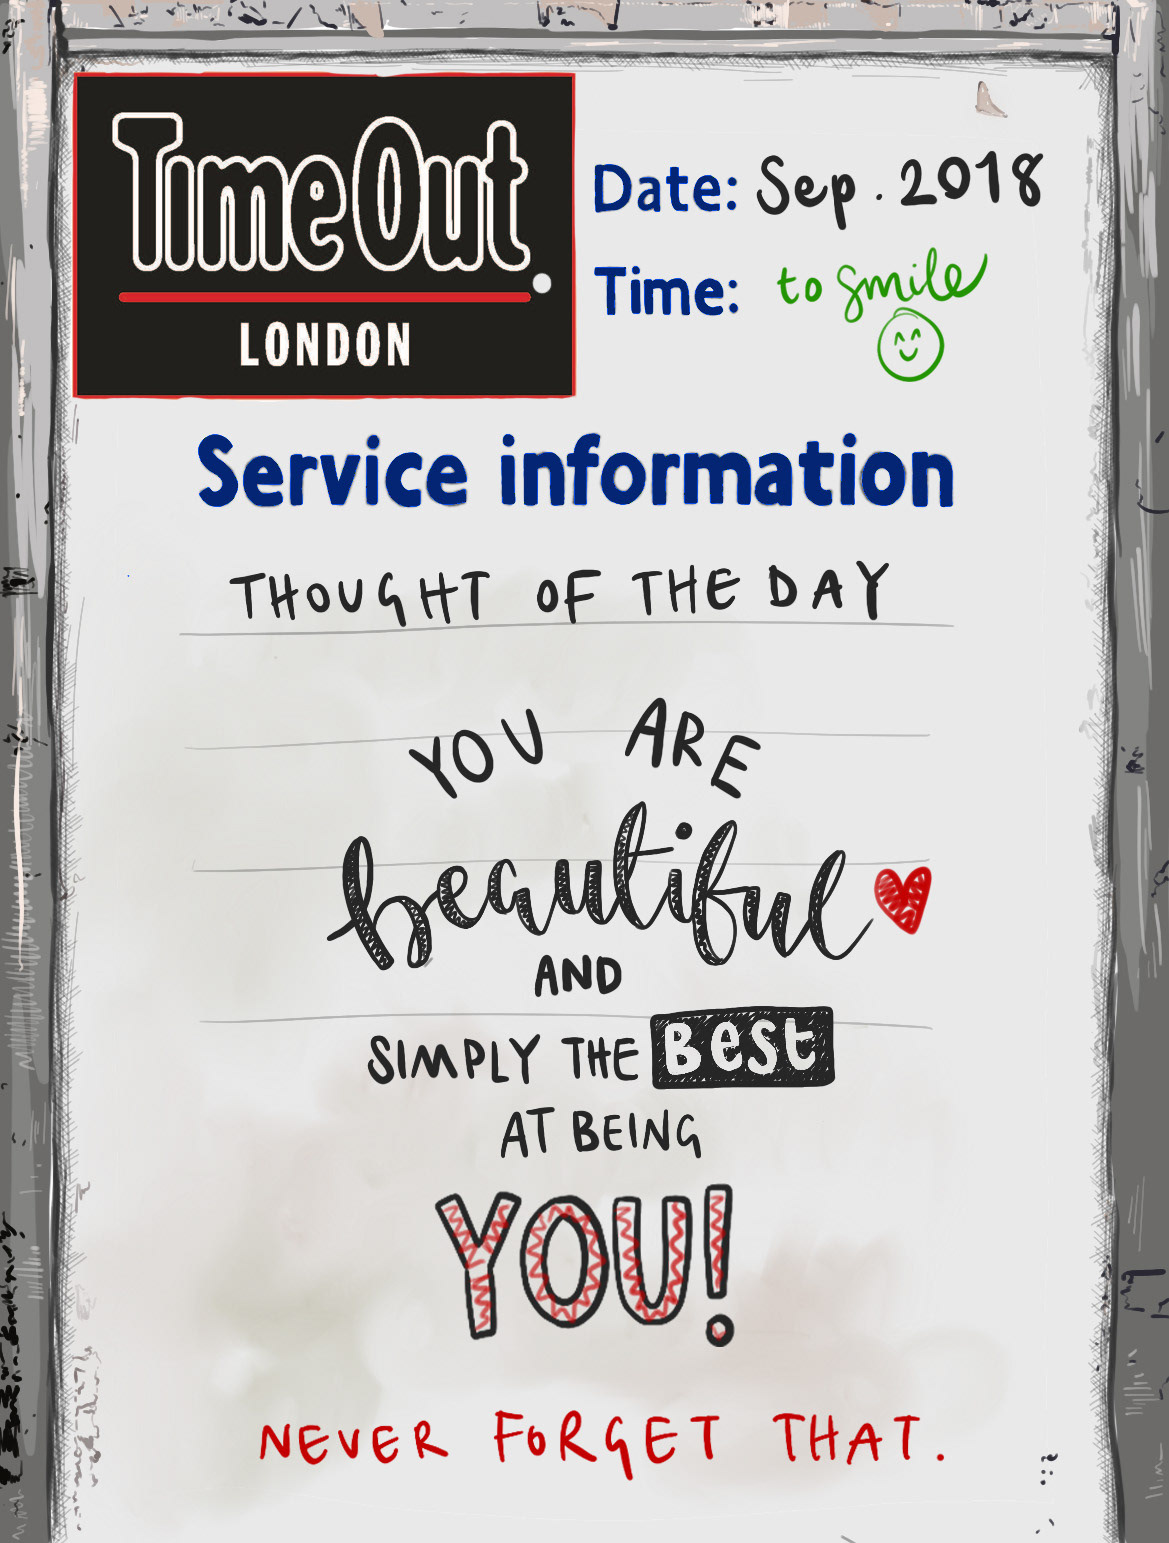 Time Out
LONDON
Date: Sep. 2018
Time: to smile
Service information
THOUGHT OF THE DAY
YOU ARE
beautiful
AND
SIMPLY THE BEST
AT BEING
YOU!
NEVER FORGET THAT.